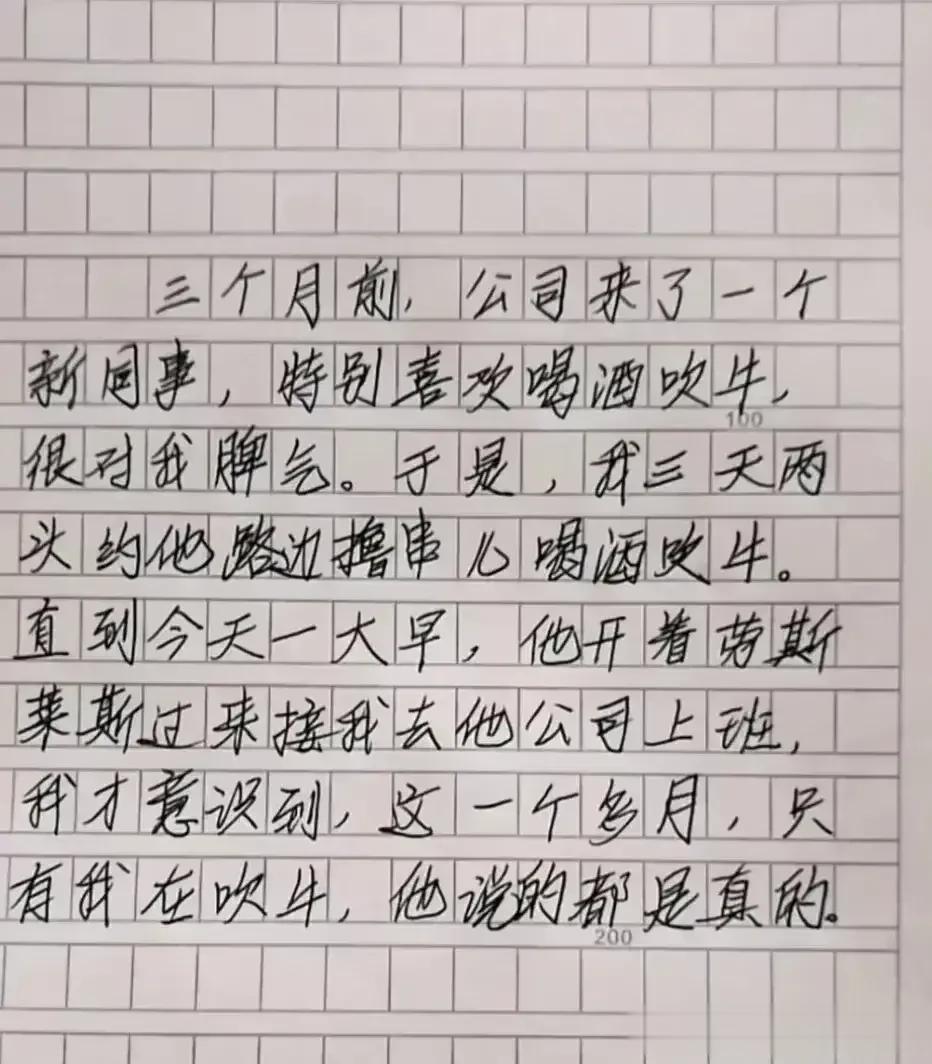 三个月前，公司来了一个
新同事，特别喜欢喝酒吹牛，
100
很对我脾气。于是，我三天两
头约他路边撸串儿喝酒吹牛。
直到今天一大早，他开着劳斯
莱斯过来接我去他公司上班，
我才意识到，这一个多月，只
有我在吹牛，他说的都是真的。
200